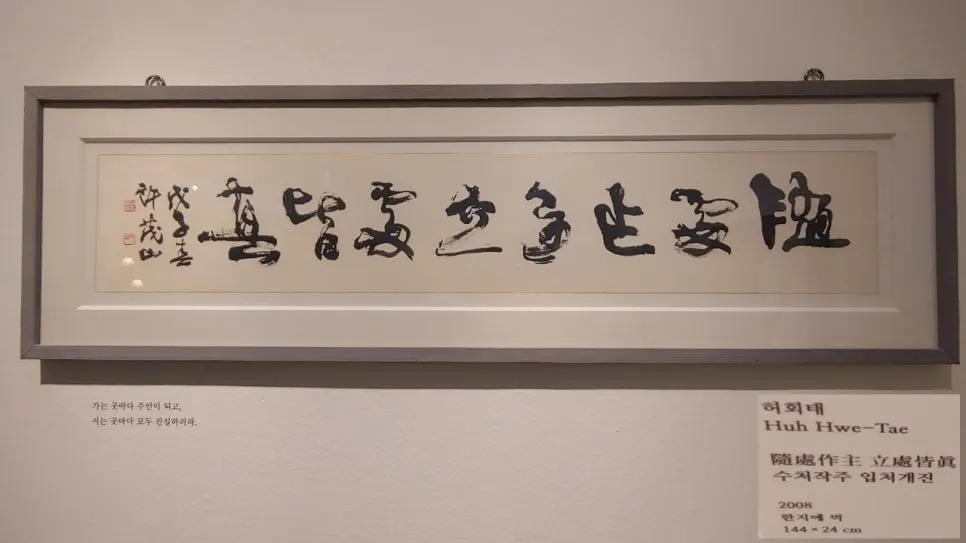 隨處作主立處皆眞
戊子春
許茂山
가는 곳마다 주인이 되고,
서는 곳마다 모두 진실하리라.
허회태
Huh Hwe-Tae
隨處作主 立處皆眞
수처작주 입처개진
2008
한지에 먹
144 × 24 cm